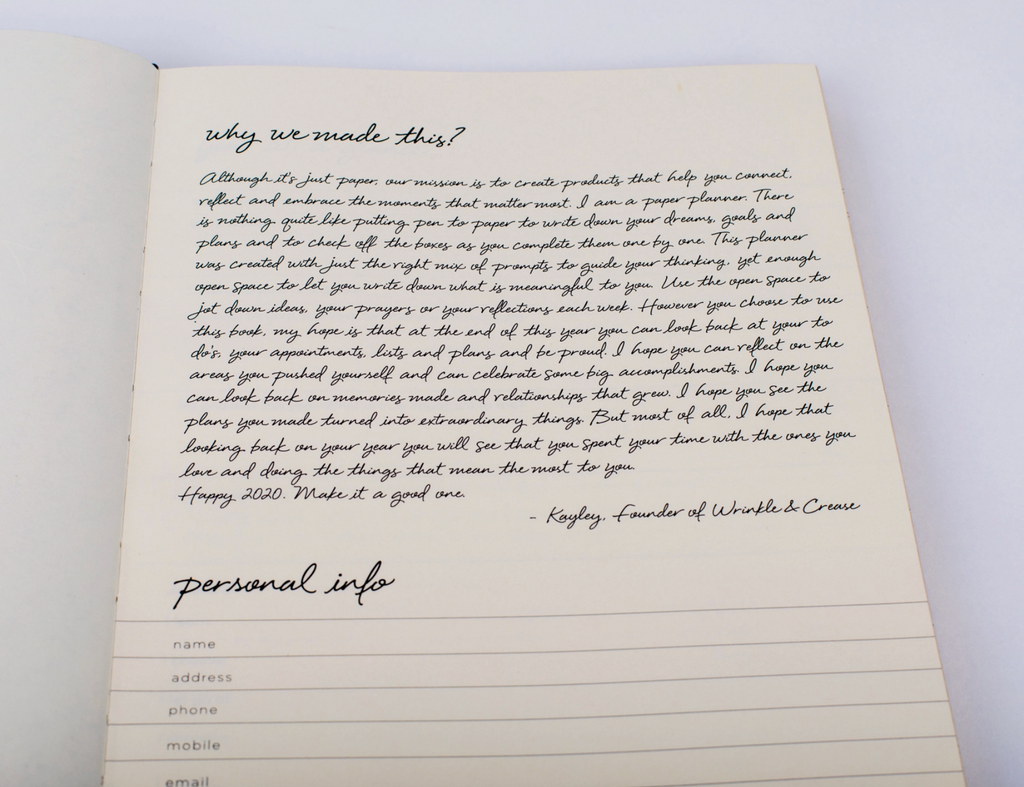 why we made this?
Although it's just paper, our mission is to create products that help you connect,
reflect and embrace the moments that matter most. I am a paper planner. There
is nothing quite like putting pen to paper to write down your dreams, goals and
plans and to check off the boxes as you complete them one by one. This planner
was created with just the right mix of prompts to guide your thinking, yet enough
open space to let you write down what is meaningful to you. Use the open space to
jot down ideas, your prayers or your reflections each week. However you choose to use
this book, my hope is that at the end of this year you can look back at your to
do's, your appointments, lists and plans and be proud. I hope you can reflect on the
areas you pushed yourself and can celebrate some big accomplishments. I hope you
can look back on memories made and relationships that grew. I hope you see the
plans you made turned into extraordinary things. But most of all, I hope that
looking back on your year you will see that you spent your time with the ones you
love and doing the things that mean the most to you.
Happy 2020. Make it a good one.
- Kayley, Founder of Wrinkle & Crease
personal info
name
address
phone
mobile
email